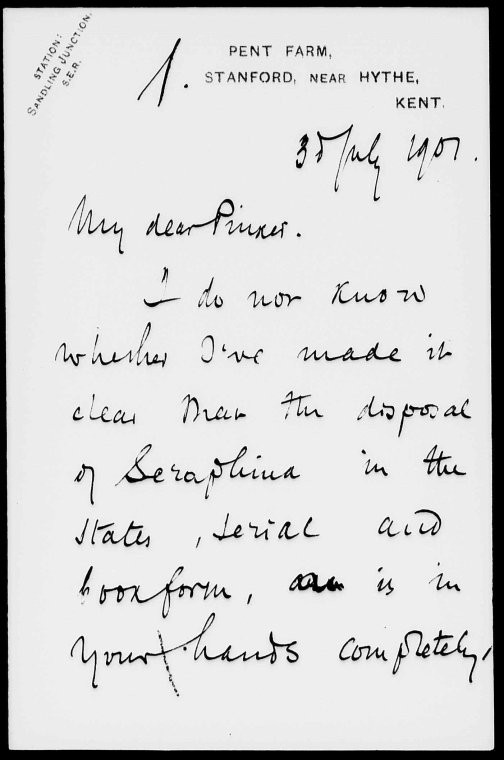 STATION:
SANDLING JUNCTION.
S.E.R.
1.
PENT FARM,
STANFORD, NEAR HYTHE,
KENT.
3d July 1901.
My dear Pinker.
I do not know
whether I've made it
clear that the disposal
of Seraphina in the
States, serial and
bookform, is in
your hands completely,